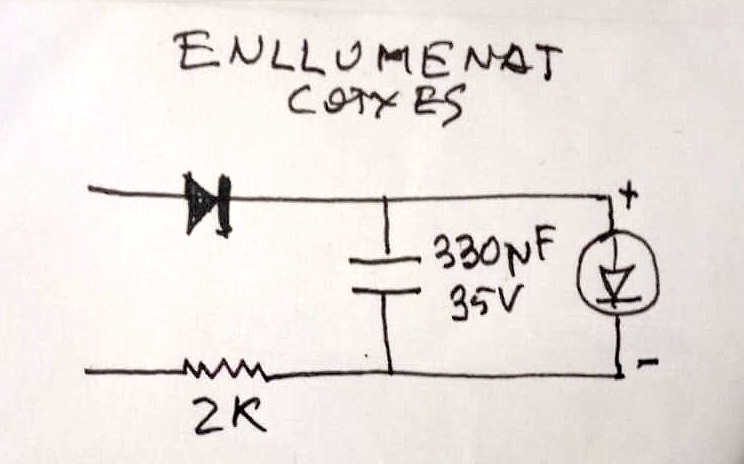 ENLLUMENAT
COTXES
+
330NF
35V
-
2K